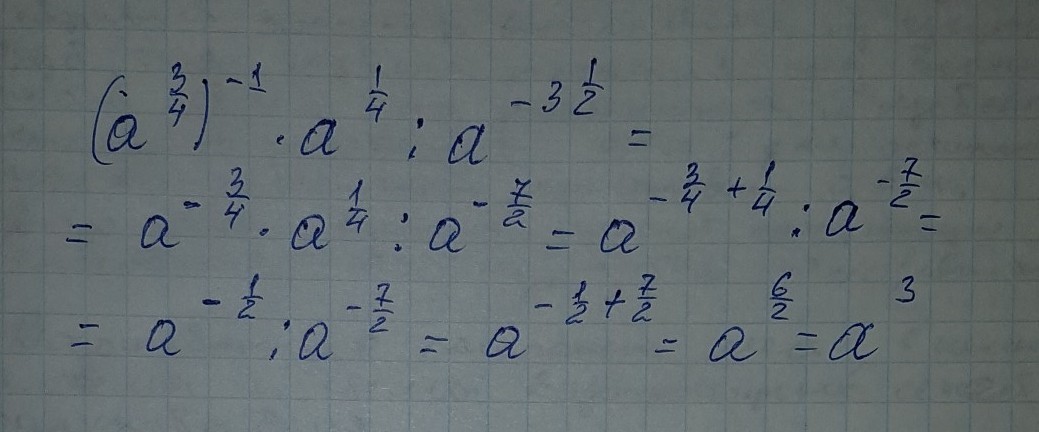 (a^{\frac{3}{4}})^{-1} · a^{\frac{1}{4}} : a^{-3\frac{1}{2}} =
= a^{-\frac{3}{4}} · a^{\frac{1}{4}} : a^{-\frac{7}{2}} = a^{-\frac{3}{4}+\frac{1}{4}} : a^{-\frac{7}{2}} =
= a^{-\frac{1}{2}} : a^{-\frac{7}{2}} = a^{-\frac{1}{2}+\frac{7}{2}} = a^{\frac{6}{2}} = a^{3}